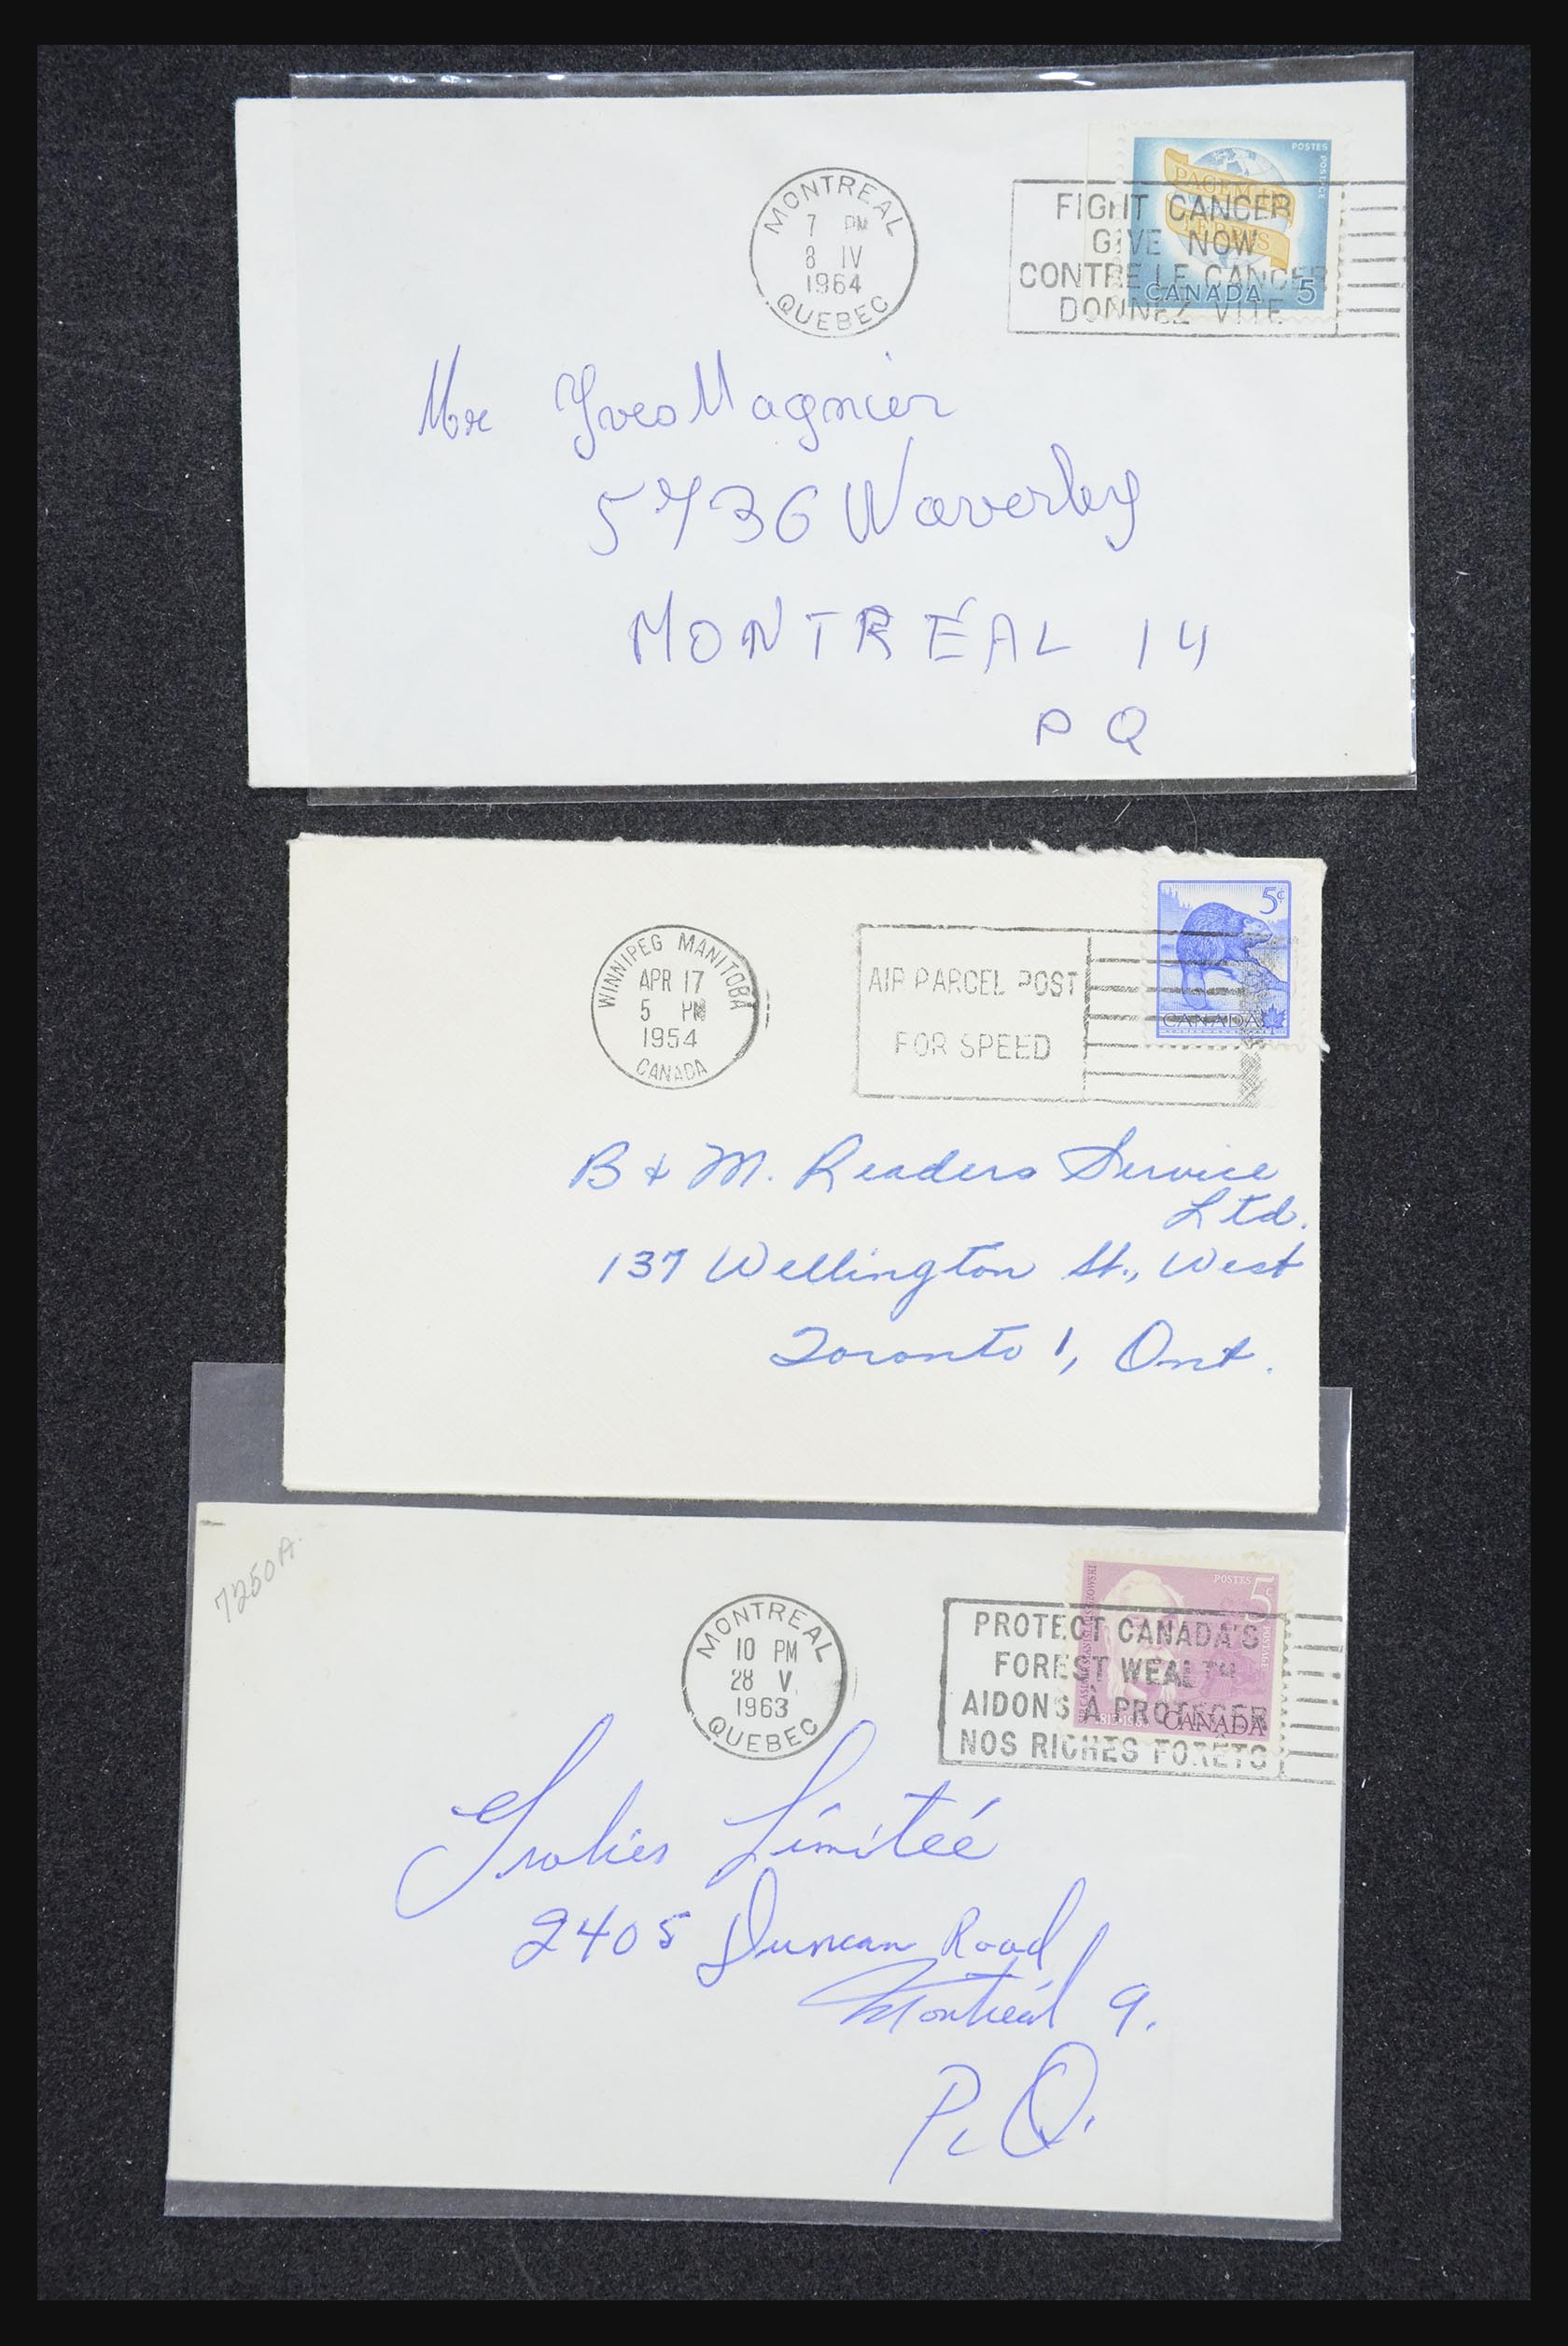 MONTREAL
7 PM
8 IV
1964
QUEBEC
FIGHT CANCER
GIVE NOW
CONTRE LE CANCER
DONNEZ VITE
POSTES
POSTAGE
PACEM IN
TERRIS
CANADA 5
Mr Yves Magnier
5736 Waverley
MONTRÉAL 14
P Q
WINNIPEG MANITOBA
APR 17
5 PM
1954
CANADA
AIR PARCEL POST
FOR SPEED
5¢
CANADA
B & M. Readers Service
Ltd.
137 Wellington St., West
Toronto 1, Ont.
7250A.
MONTREAL
10 PM
28 V
1963
QUEBEC
PROTECT CANADA'S
FOREST WEALTH
AIDONS À PROTEGER
NOS RICHES FORÊTS
POSTES 5¢
POSTAGE
CANADA
Limiteé
2405 Duncan Road
Montréal 9.
P. Q.